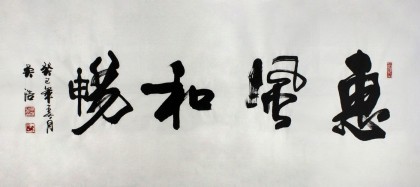 惠風和暢
癸巳年春月